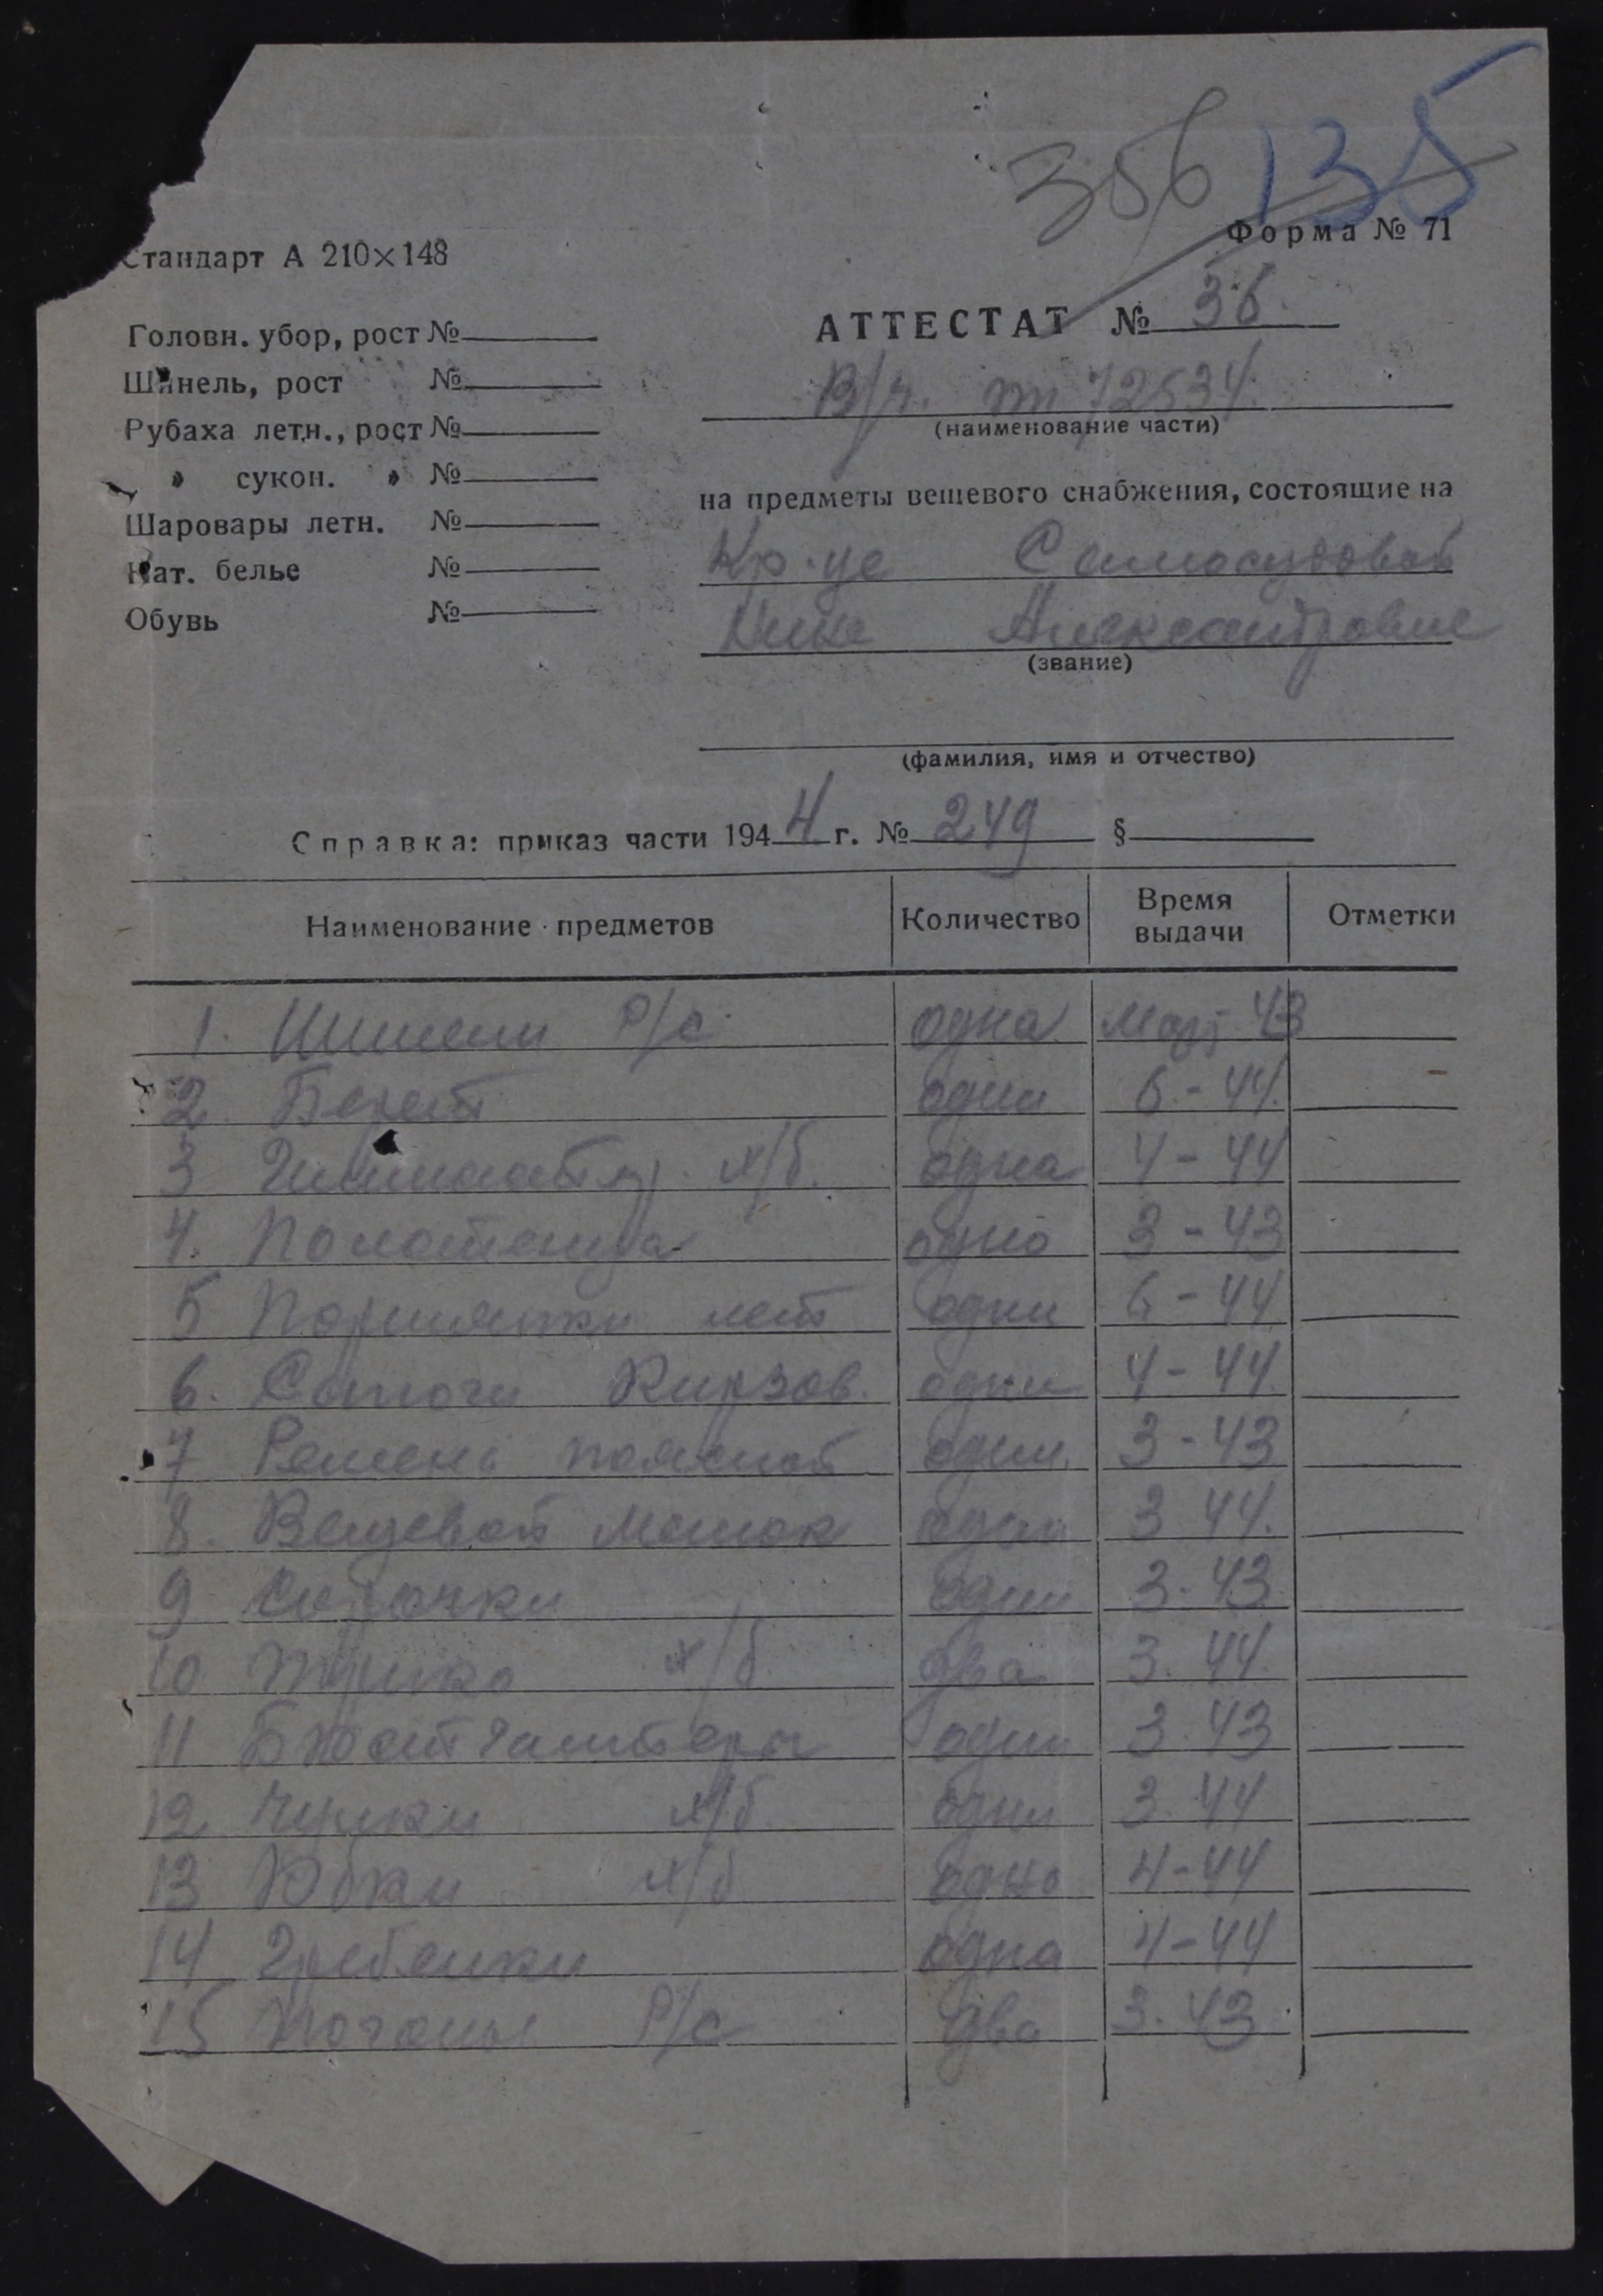 356 135
Форма № 71
Стандарт А 210×148
Головн. убор, рост №
Шинель, рост №
Рубаха летн., рост №
» сукон. » №
Шаровары летн. №
Нат. белье №
Обувь №
АТТЕСТАТ № 36.
В/ч. пп 72534
(наименование части)
на предметы вещевого снабжения, состоящие на
Кр-це Самосудовой
Нине Александровне
(звание)
(фамилия, имя и отчество)
Справка: приказ части 1944 г. № 249 §
Наименование предметов Количество Время выдачи Отметки
1. Шинели р/с одна Март 43
2. Берет один 6-44.
3 Гимнастер. х/б. одна 4-44
4. Полотенца одно 3-43
5 Портянки лет одни 6-44
6. Сапоги Кирзов. одни 4-44
7 Ремень поясной один 3-43
8. Вещевой мешок один 3 44.
9 Сорочки одни 3-43
10 Трико х/б. два 3. 44.
11 Бюстгалтеры один 3.43
12 Чулки х/б. одни 3.44
13 Юбки х/б одна 4-44
14 Гребенки одна 4-44
15 Погоны р/с два 3.43